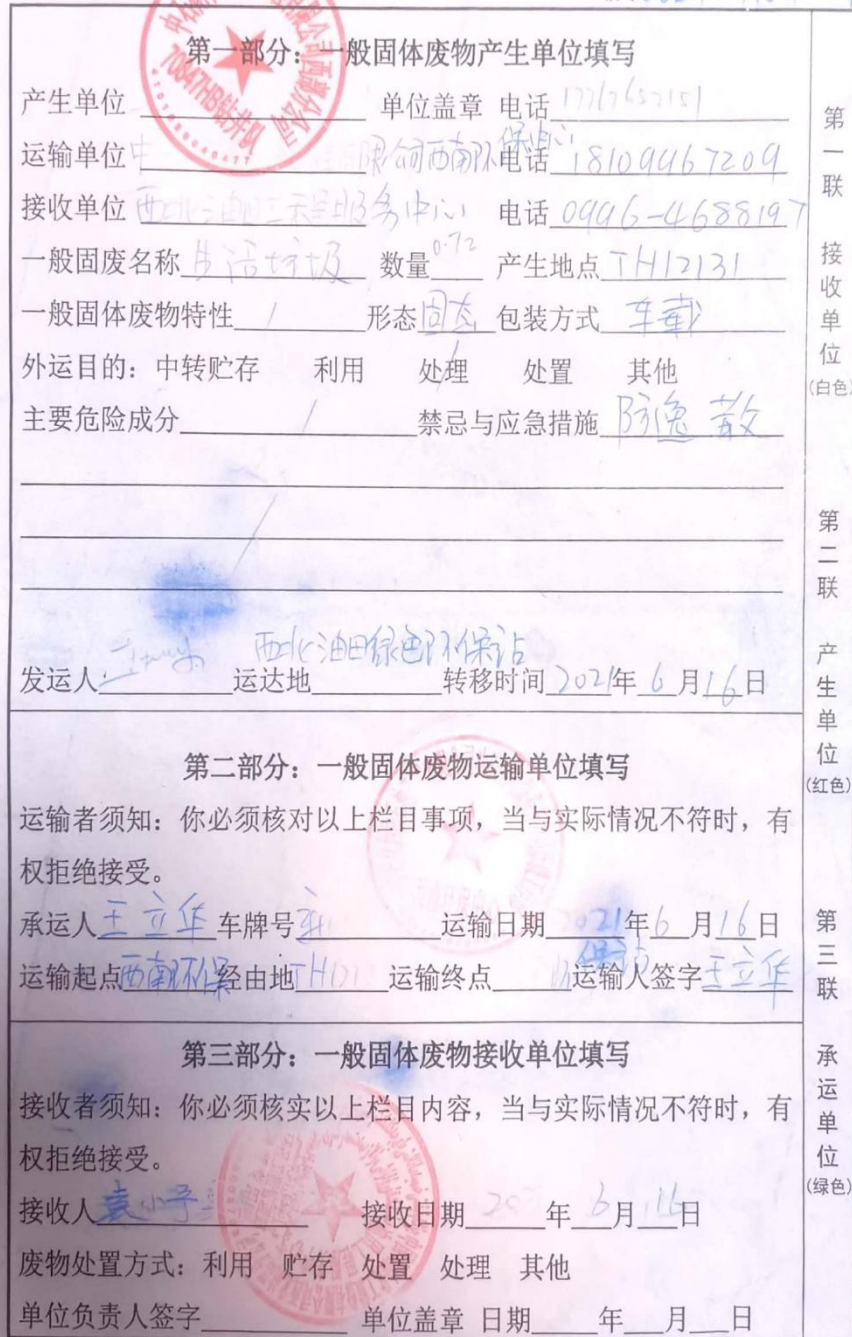 第一部分：一般固体废物产生单位填写
产生单位 单位盖章 电话17767652151
70847HB钻井队
运输单位中 限公司西南环保中心 电话18109967209
接收单位西北油田工程服务中心 电话0996-4688197
一般固废名称生活垃圾 数量0.72 产生地点TH12131
一般固体废物特性/ 形态固态 包装方式车载
外运目的：中转贮存 利用 处理 处置 其他
主要危险成分/ 禁忌与应急措施防逸散
西北油田绿色环保站
发运人： 运达地 转移时间2021年6月16日
第二部分：一般固体废物运输单位填写
运输者须知：你必须核对以上栏目事项，当与实际情况不符时，有
权拒绝接受。
承运人王立华车牌号新 运输日期2021年6月16日
运输起点西南环保经由地TH121 运输终点 保站 运输人签字王立华
第三部分：一般固体废物接收单位填写
接收者须知：你必须核实以上栏目内容，当与实际情况不符时，有
权拒绝接受。
接收人袁小子 接收日期 202 年6月16日
废物处置方式：利用 贮存 处置 处理 其他
单位负责人签字 单位盖章 日期 年 月 日
第一联 接收单位(白色)
第二联 产生单位(红色)
第三联 承运单位(绿色)